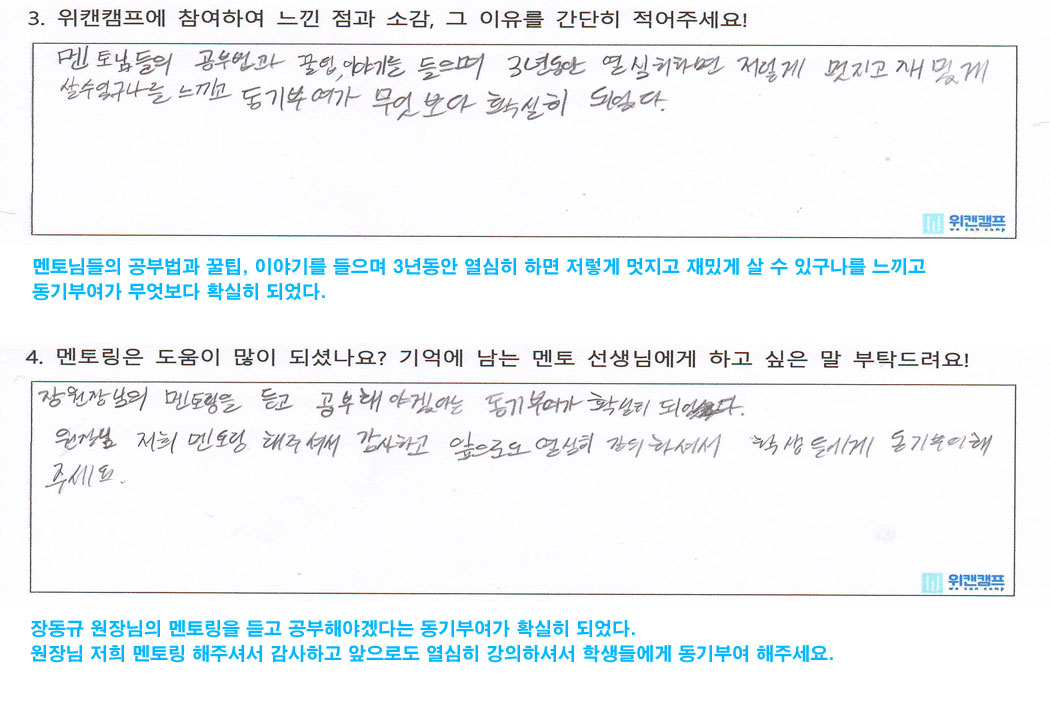 3. 위캔캠프에 참여하여 느낀 점과 소감, 그 이유를 간단히 적어주세요!
멘토님들의 공부법과 꿀팁, 이야기를 들으며 3년동안 열심히하면 저렇게 멋지고 재밌게
살수있구나를 느끼고 동기부여가 무엇보다 확실히 되었다.
위캔캠프
we can camp
멘토님들의 공부법과 꿀팁, 이야기를 들으며 3년동안 열심히 하면 저렇게 멋지고 재밌게 살 수 있구나를 느끼고
동기부여가 무엇보다 확실히 되었다.
4. 멘토링은 도움이 많이 되셨나요? 기억에 남는 멘토 선생님에게 하고 싶은 말 부탁드려요!
장원장님의 멘토링을 듣고 공부해야겠다는 동기부여가 확실히 되었다.
원장님 저희 멘토링 해주셔서 감사하고 앞으로도 열심히 강의하셔서 학생들에게 동기부여해
주세요.
위캔캠프
we can camp
장동규 원장님의 멘토링을 듣고 공부해야겠다는 동기부여가 확실히 되었다.
원장님 저희 멘토링 해주셔서 감사하고 앞으로도 열심히 강의하셔서 학생들에게 동기부여 해주세요.